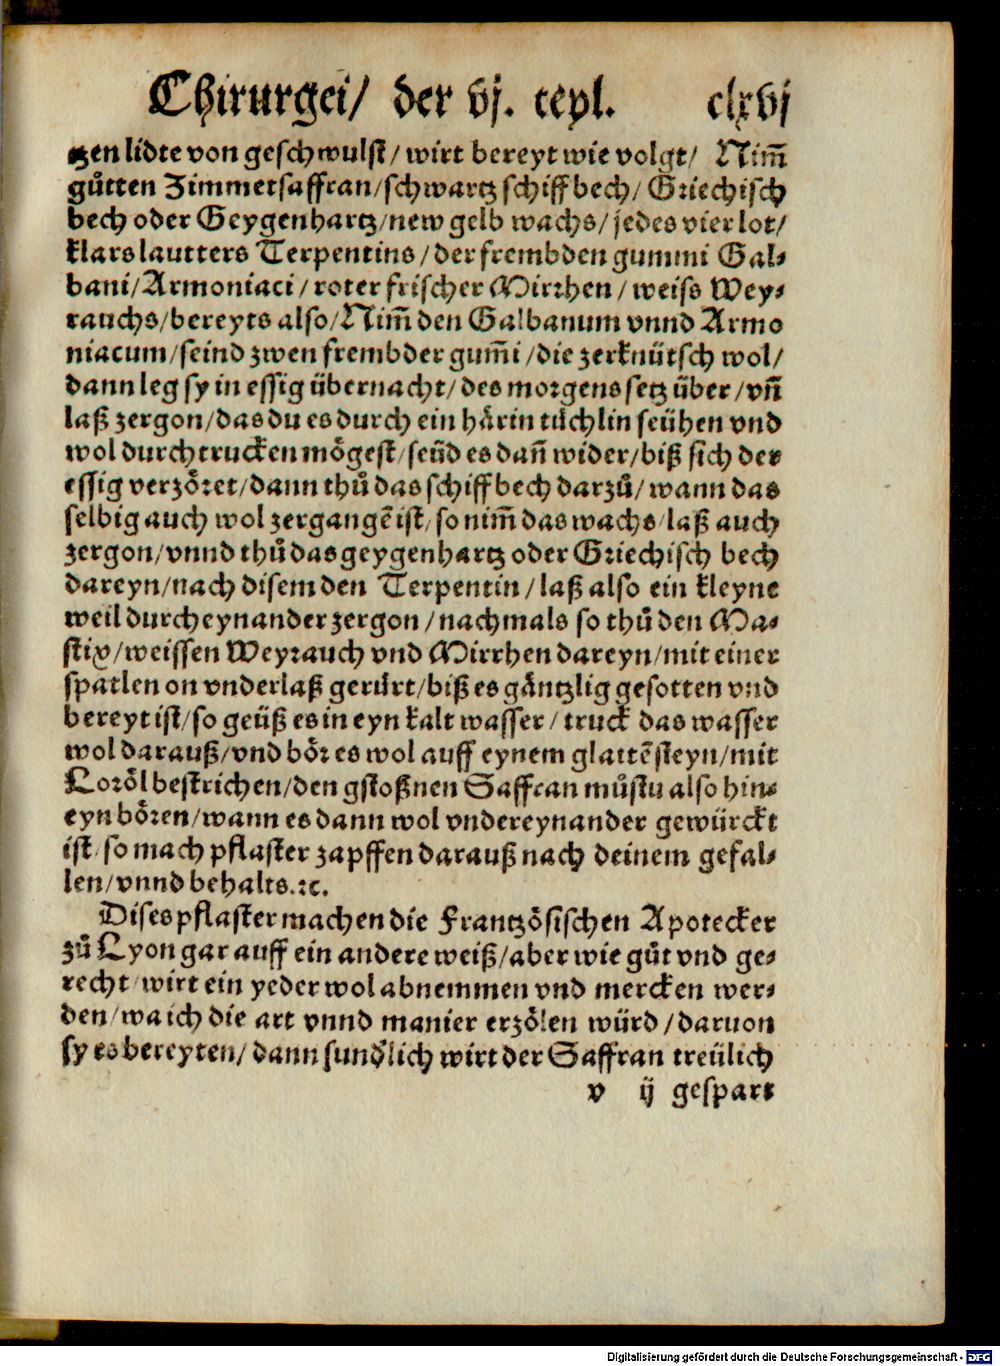 Chirurgei/ der vj. teyl. clxvj
tzen lidte von geschwulst/ wirt bereyt wie volgt/ Nim̃
gůtten Zimmetsaffran/schwartz schiffbech/ Griechisch
bech oder Geygenhartz/new gelb wachs/ jedes vier lot/
klars lautters Terpentins/der frembden gummi Gal-
bani/Armoniaci/roter frischer Mirrhen/weiss Wey-
rauchs/bereyts also/Nim̃ den Galbanum vnnd Armo
niacum/seind zwen frembder gum̃i/die zerknütsch wol/
dann leg sy in essig übernacht/des morgens setz über/vñ
laß zergon/das du es durch ein hårin tüchlin seühen vnd
wol durchtrucken mögest/seüd es dañ wider/biß sich der
essig verzöret/dann thů das schiffbech darzů/wann das
selbig auch wol zergangẽ ist/so nim̃ das wachs/laß auch
zergon/vnnd thů das geygenhartz oder Griechisch bech
dareyn/nach disem den Terpentin/laß also ein kleyne
weil durcheynander zergon/nachmals so thů den Ma-
stix/weissen Weyrauch vnd Mirrhen dareyn/mit einer
spatlen on vnderlaß gerürt/biß es gäntzlig gesotten vnd
bereyt ist/so geüß es in eyn kalt wasser/truck das wasser
wol darauß/vnd bör es wol auff eynem glattẽ steyn/mit
Loröl bestrichen/den gstoßnen Saffran můstu also hin-
eyn bören/wann es dann wol vndereynander gewürckt
ist/so mach pflaster zapffen darauß nach deinem gefal-
len/vnnd behalts.ꝛc.
Dises pflaster machen die Frantzösischen Apotecker
zů Lyon gar auff ein andere weiß/aber wie gůt vnd ge-
recht/wirt ein yeder wol abnemmen vnd mercken wer-
den/wa ich die art vnnd manier erzölen würd/daruon
sy es bereyten/dann sunďlich wirt der Saffran treülich
v ij gespart
Digitalisierung gefördert durch die Deutsche Forschungsgemeinschaft - DFG